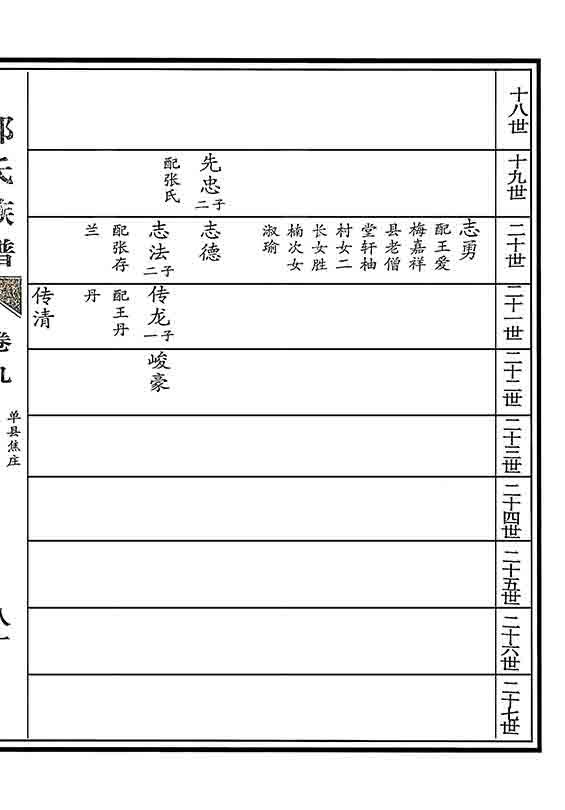 十八世
十九世
先忠
二子
配张氏
二十世
志勇
配王爱
梅嘉祥
县老僧
堂轩柚
村女二
长女胜
楠次女
淑瑜
志德
志法
二子
配张存
兰
二十一世
传龙
一子
配王丹
丹
传清
二十二世
峻豪
二十三世
二十四世
二十五世
二十六世
二十七世
氏族谱
卷九
单县焦庄